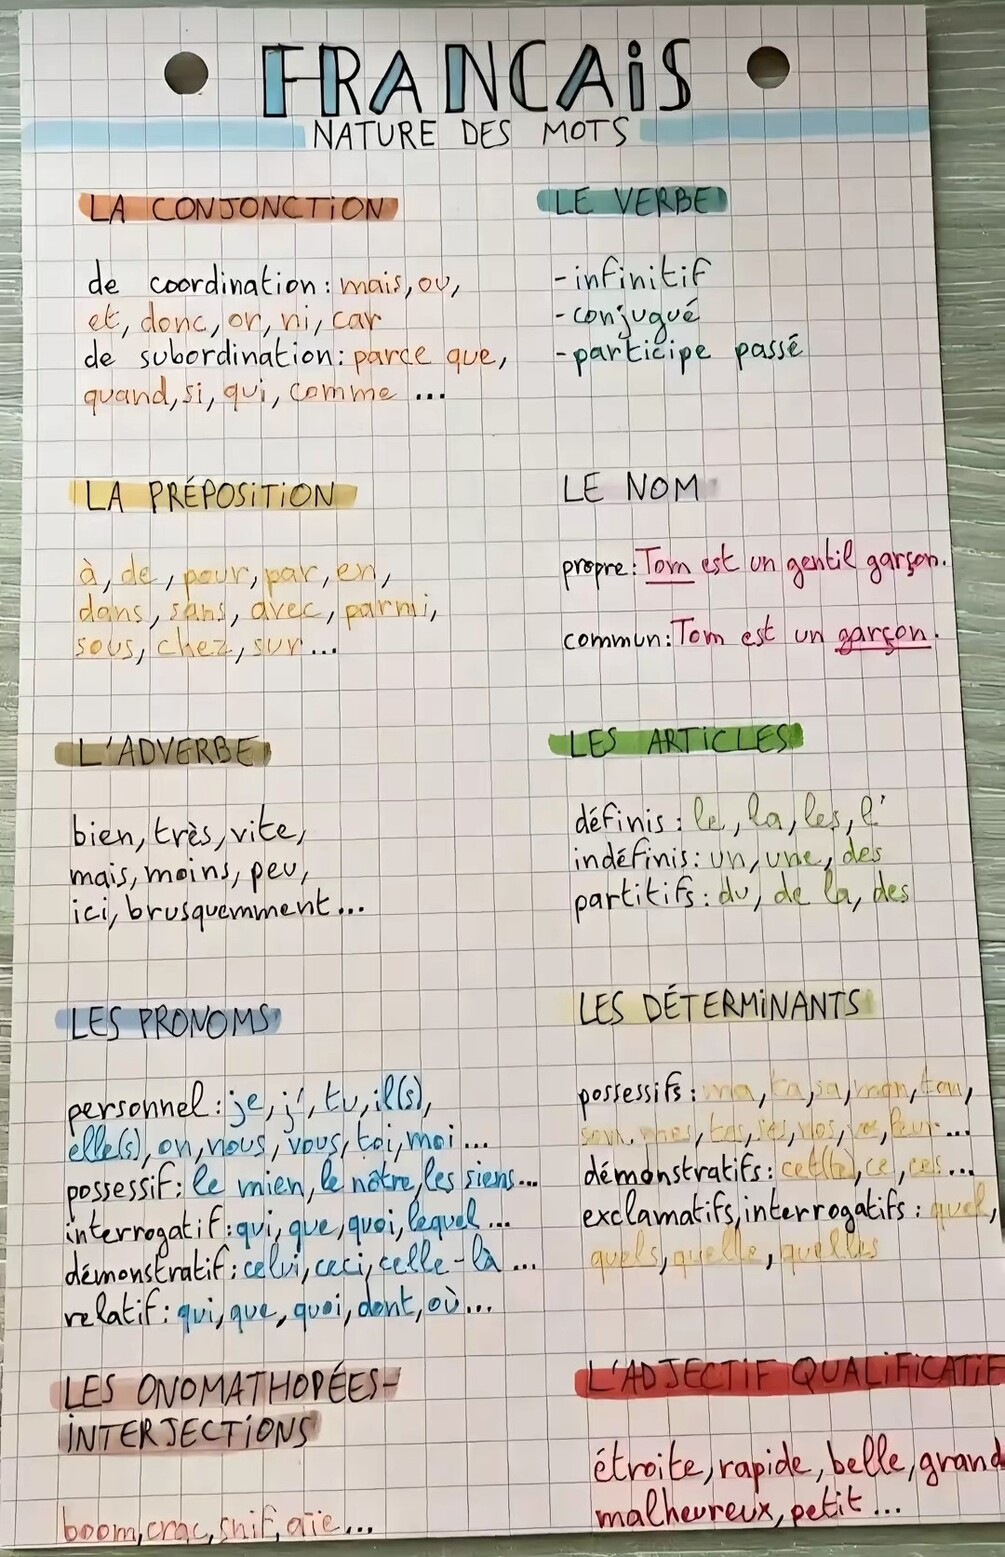 FRANCAiS
NATURE DES MOTS
LA CONJONCTiON
de coordination : mais, ou,
et, donc, or, ni, car
de subordination : parce que,
quand, si, qui, comme ...
LE VERBE
- infinitif
- conjugué
- participe passé
LA PRÉPOSiTiON
à, de, pour, par, en,
dans, sans, avec, parmi,
sous, chez, sur ...
LE NOM
propre : Tom est un gentil garçon.
commun : Tom est un garçon.
L'ADVERBE
bien, très, vite,
mais, moins, peu,
ici, brusquemment ...
LES ARTiCLES
définis : le, la, les, l'
indéfinis : un, une, des
partitifs : du, de la, des
LES PRONOMS
personnel : je, j', tu, il(s),
elle(s), on, nous, vous, toi, moi ...
possessif : le mien, le nôtre, les siens ...
interrogatif : qui, que, quoi, lequel ...
démonstratif : celui, ceci, celle-là ...
relatif : qui, que, quoi, dont, où ...
LES DÉTERMiNANTS
possessifs : ma, ta, sa, mon, ton,
son, mes, tes, ses, nos, vos, leur ...
démonstratifs : cet(te), ce, ces ...
exclamatifs, interrogatifs : quel,
quels, quelle, quelles
LES ONOMATHOPÉES-
iNTERJECTiONS
boom, crac, snif, aïe ...
L'ADJECTiF QUALiFiCATiF
étroite, rapide, belle, grand
malheureux, petit ...